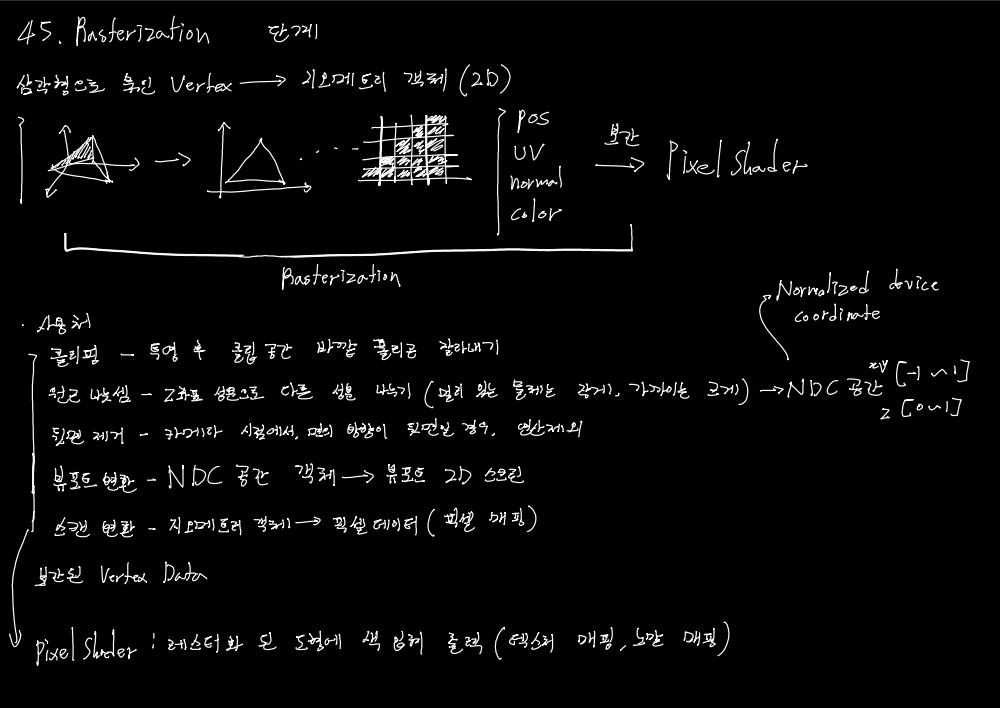 45. Rasterization 단계
삼각형으로 묶인 Vertex → 지오메트리 객체 (2D)
pos
UV
normal
color
보간
→ Pixel Shader
Rasterization
Normalized device
coordinate
클리핑 - 투영 후 클립 공간 바깥 폴리곤 잘라내기
원근 나눗셈 - Z좌표 성분으로 다른 성분 나누기 (멀리 있는 물체는 작게, 가까이는 크게) → NDC 공간 xy [-1 ~ 1]
z [0~1]
뒷면 제거 - 카메라 시점에서, 면의 방향이 뒷면일 경우, 연산제외
뷰포트 변환 - NDC 공간 객체 → 뷰포트 2D 스크린
스캔 변환 - 지오메트리 객체 → 픽셀 데이터 (픽셀 매핑)
보간된 Vertex Data
Pixel Shader : 레스터화 된 도형에 색 입혀 출력 (텍스처 매핑, 노말 매핑)